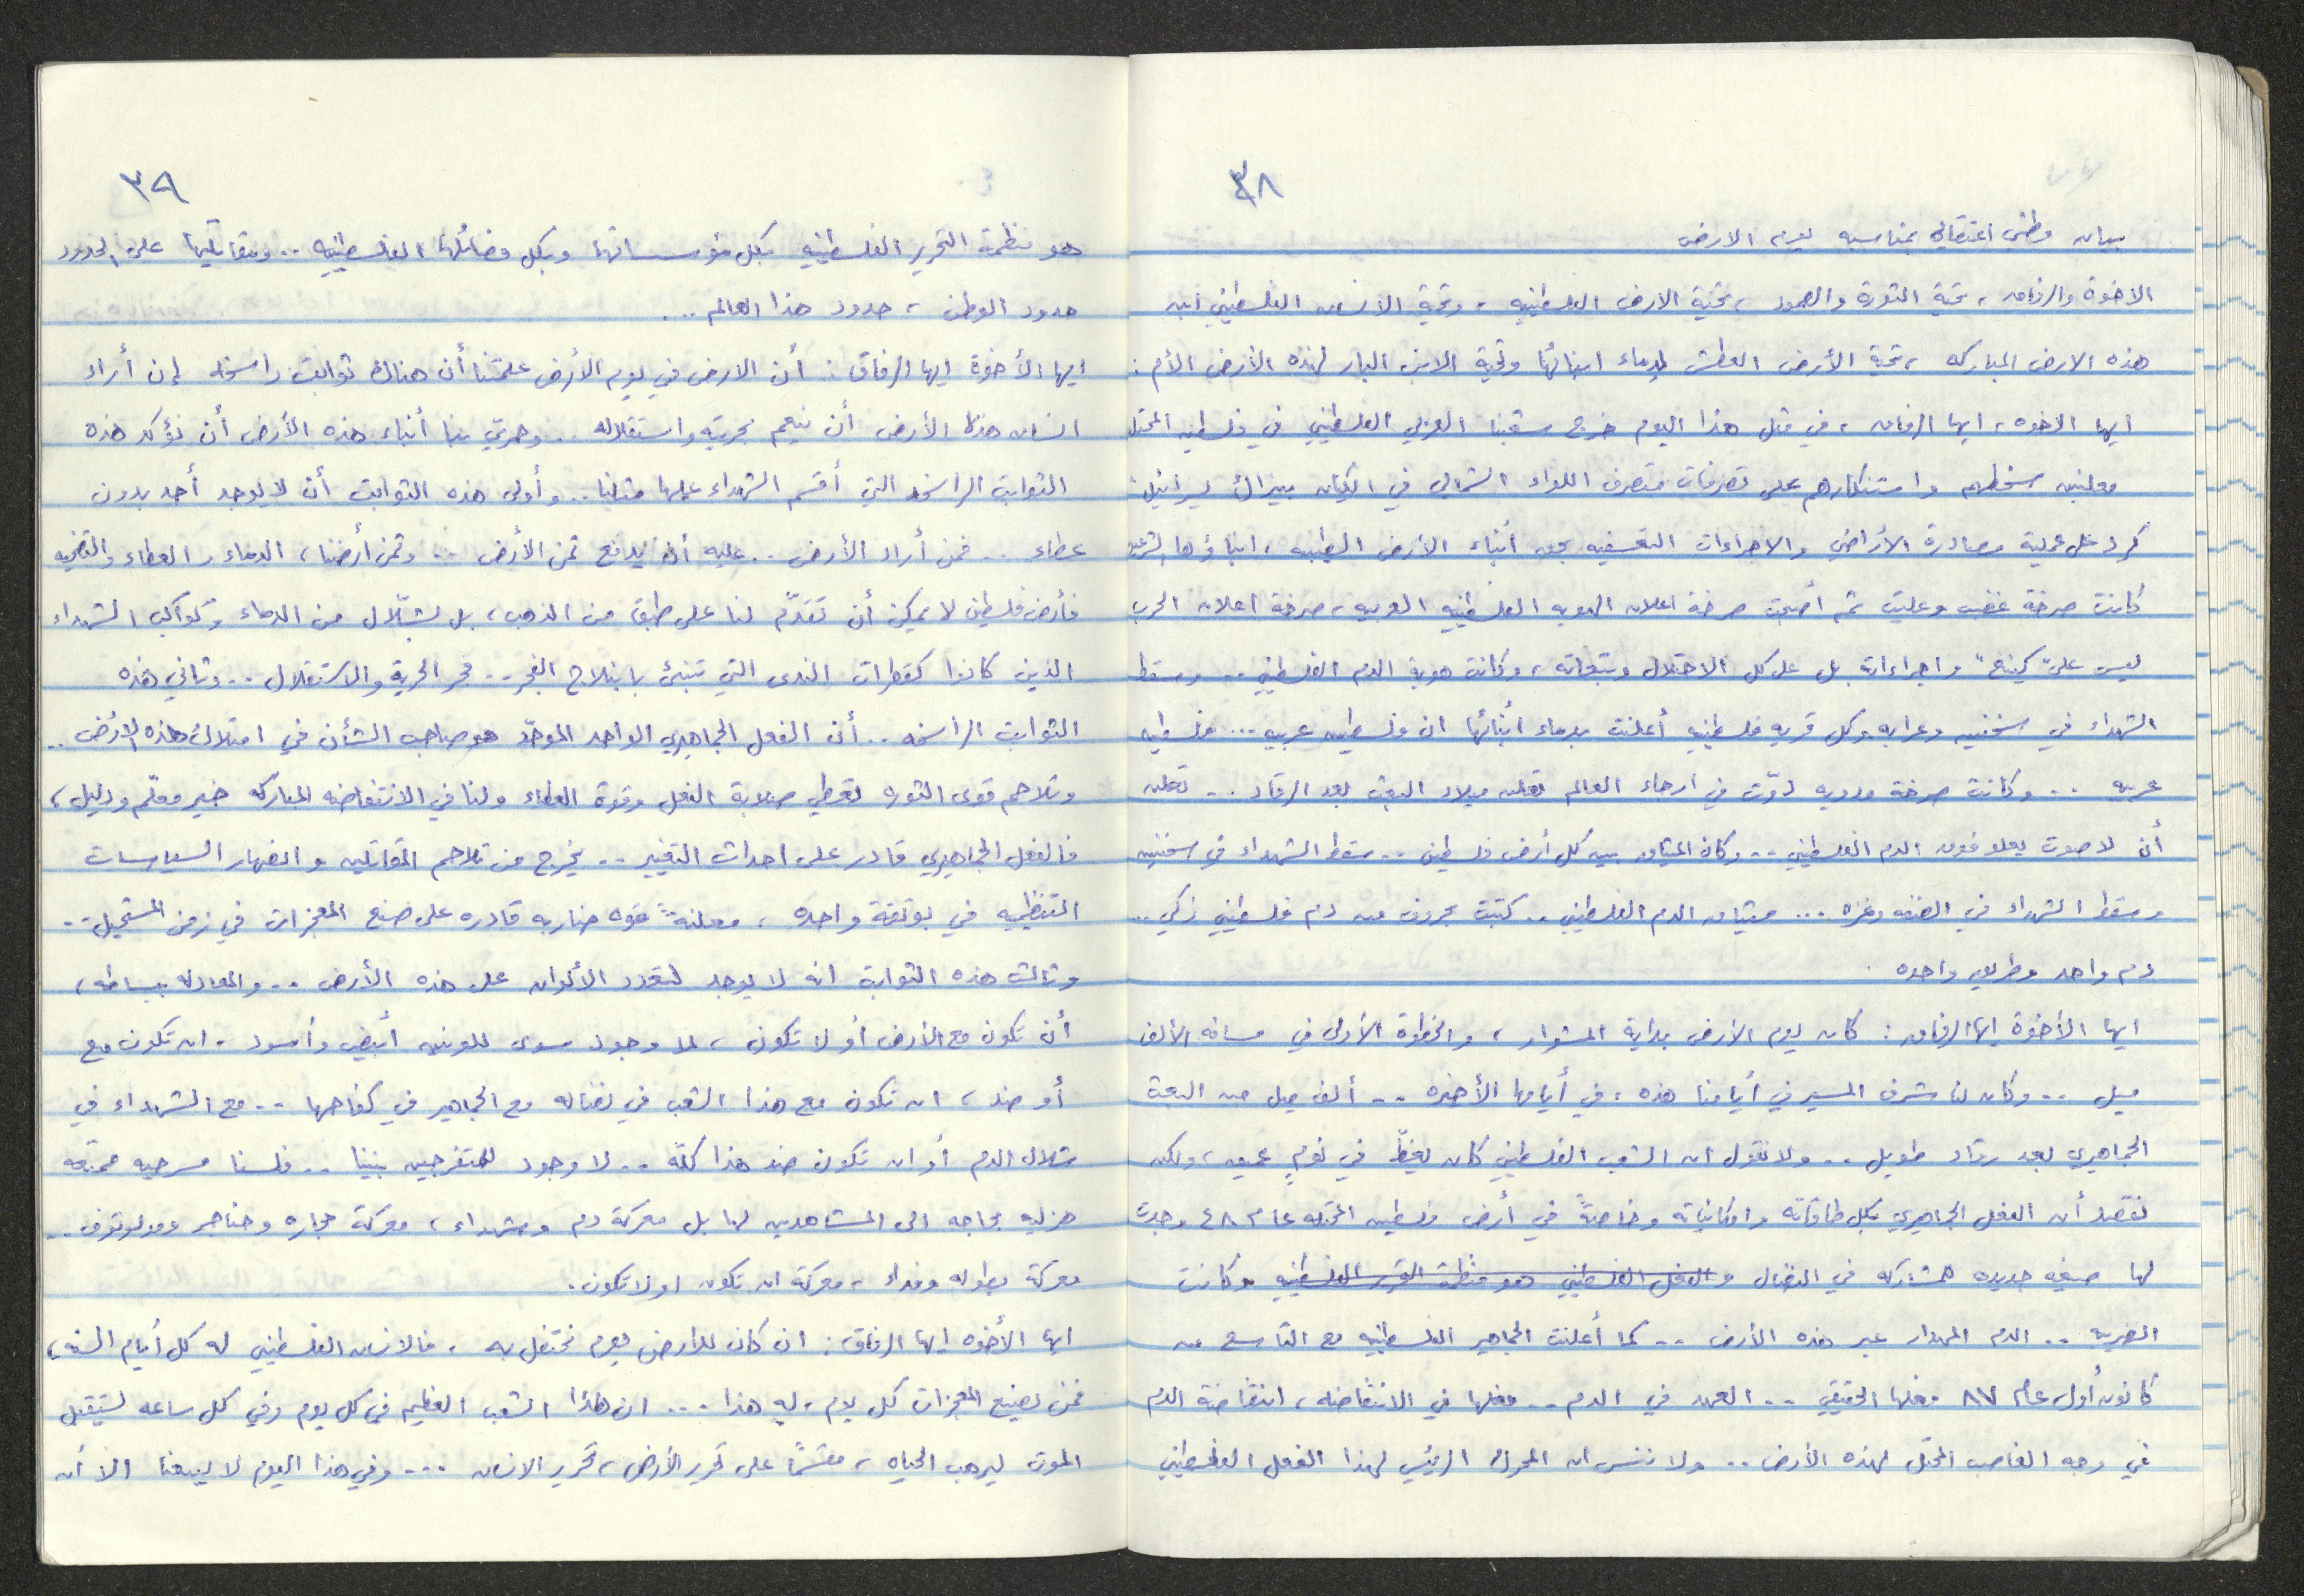 ٣٨
بيان وطني اعتقالي بمناسبه يوم الارض
الاخوة والرفاق، تحية الثورة والصمود، تحية الارض الفلسطينيه، وتحية الانسان الفلسطيني ابن
هذه الارض المباركه، تحية الأرض العطشى لدماء ابنائها وتحية الابن البار لهذه الأرض الأم:
ايها الاخوه، ايها الرفاق، في مثل هذا اليوم خرج شعبنا العربي الفلسطيني في فلسطين المحتله
معلنين سخطهم واستنكارهم على تصرفات متصرف اللواء الشمالي في الكيان
كرد على عملية مصادرة الأراضي والاجراءات التعسفيه بحق أبناء الأرض الطيبه، ابناؤها الشرعيين
كانت صرخة غضب وعلت ثم أصبحت صرخة اعلان الهويه الفلسطينيه العربيه، صرخة اعلان الحرب
ليس على "كينغ" واجراءاته بل على كل الاحتلال وتبعاته، وكانت هوية الدم الفلسطيني .. وسقط
الشهداء في سخنين وعرابه وكل قريه فلسطينيه أعلنت بدماء أبنائها ان فلسطين عربيه... فلسطين
عربيه .. وكانت صرخة مدويه دوّت في ارجاء العالم تعلن ميلاد البعث بعد الرقاد .. تعلن
أن لا صوت يعلو فوق الدم الفلسطيني .. وكان الميثاق بين كل أرض فلسطين .. سقط الشهداء في سخنين
وسقط الشهداء في الضفه وغزه ... ميثاق الدم الفلسطيني .. كتبت بحروف من دم فلسطيني زكي ..
دم واحد وطريق واحده .
ايها الأخوة ايها الرفاق: كان يوم الأرض بداية المشوار، والخطوة الأولى في مسافه الألف
ميل .. وكان لنا شرف المسير في أيامنا هذه، في أيامها الأخيره .. ألف ميل من البعث
الجماهيري بعد رقاد طويل .. ولا نقول ان الشعب الفلسطيني كان يغطّ في نومٍ عميق، ولكن
نقصد أن الفعل الجماهيري بكل طاقاته وامكانياته وخاصةً في أرض فلسطين المحتله عام ٤٨ وجدت
لها صيغه جديده للمشاركه في النضال والفعل الفلسطيني هو منظمة التحرير الفلسطينيه وكانت
الضريبه .. الدم المهدار عبر هذه الأرض .. كما أعلنت الجماهير الفلسطينيه مع التاسع من
كانون أول عام ٨٧ فعلها الحقيقي .. العهد في الدم .. فعلها في الانتفاضه، انتفاضة الدم
في وجه الغاصب المحتل لهذه الأرض .. ولا ننس ان المحرك الرئيسي لهذا الفعل الفلسطيني
٣٩
هو منظمة التحرير الفلسطينيه بكل مؤسساتها وبكل فصائلها الفلسطينيه .. ومقاتليها على الحدود
حدود الوطن، حدود هذا العالم ..
ايها الأخوة ايها الرفاق: أن الارض في يوم الأرض علمتنا أن هناك ثوابت راسخه إن أراد
انسان هذه الأرض أن ينعم بحريته واستقلاله .. وحري بنا أبناء هذه الأرض أن نؤكد هذه
الثوابت الراسخه التي أقسم الشهداء عليها مثلنا .. وأولى هذه الثوابت أن لا يوجد أحد بدون
عطاء .. فمن أراد الأرض .. عليه أن يدفع ثمن الأرض .. وثمن أرضنا، الدماء والعطاء والتضحيه
فأرض فلسطين لا يمكن أن تقدّم لنا على طبق من الذهب، بل بشلّال من الدماء وكواكب الشهداء
الذين كانوا كقطرات الندى التي تنبئ بانبلاج الفجر .. فجر الحرية والاستقلال .. وثاني هذه
الثوابت الراسخه .. أن الفعل الجماهيري الواحد الموحّد هو صاحب الشأن في امتلاك هذه الأرض ..
وتلاحم قوى الثوره تعطي صلابة الفعل وقوة العطاء ولنا في الانتفاضه المباركه خير معلّم ودليل،
فالفعل الجماهيري قادر على احداث التغيير .. يخرج من تلاحم المقاتلين وانصهار السياسات
التنظيميه في بوتقة واحده، معلنةً قوه ضاربه قادره على صنع المعجزات في زمن المستحيل ..
وثالث هذه الثوابت انه لا يوجد لتعدد الألوان على هذه الأرض .. والمعادله ببساطه،
أن تكون مع الأرض أو لا تكون، لا وجود سوى للونين أبيض وأسود، ان تكون مع
أو ضد، ان تكون مع هذا الشعب في نضاله مع الجماهير في كفاحها .. مع الشهداء في
شلال الدم أو ان تكون ضد هذا كلّه .. لا وجود للمتفرجين بيننا .. فلسنا مسرحيه ممتعه
هزليه بحاجه الى المشاهدين لها بل معركة دم وشهداء، معركة حجاره وخناجر ومولوتوف ..
معركة بطوله وفداء، معركة ان تكون او لا تكون.
ايها الأخوه ايها الرفاق: ان كان للأرض يوم نحتفل به، فالانسان الفلسطيني له كل أيام السنه،
فمن يصنع المعجزات كل يوم، له هذا ... ان هذا الشعب العظيم في كل يوم وفي كل ساعه يستقبل
الموت ليهب الحياه، مقسمًا على تحرير الأرض، تحرير الانسان ... وفي هذا اليوم لا يسعنا الا أن